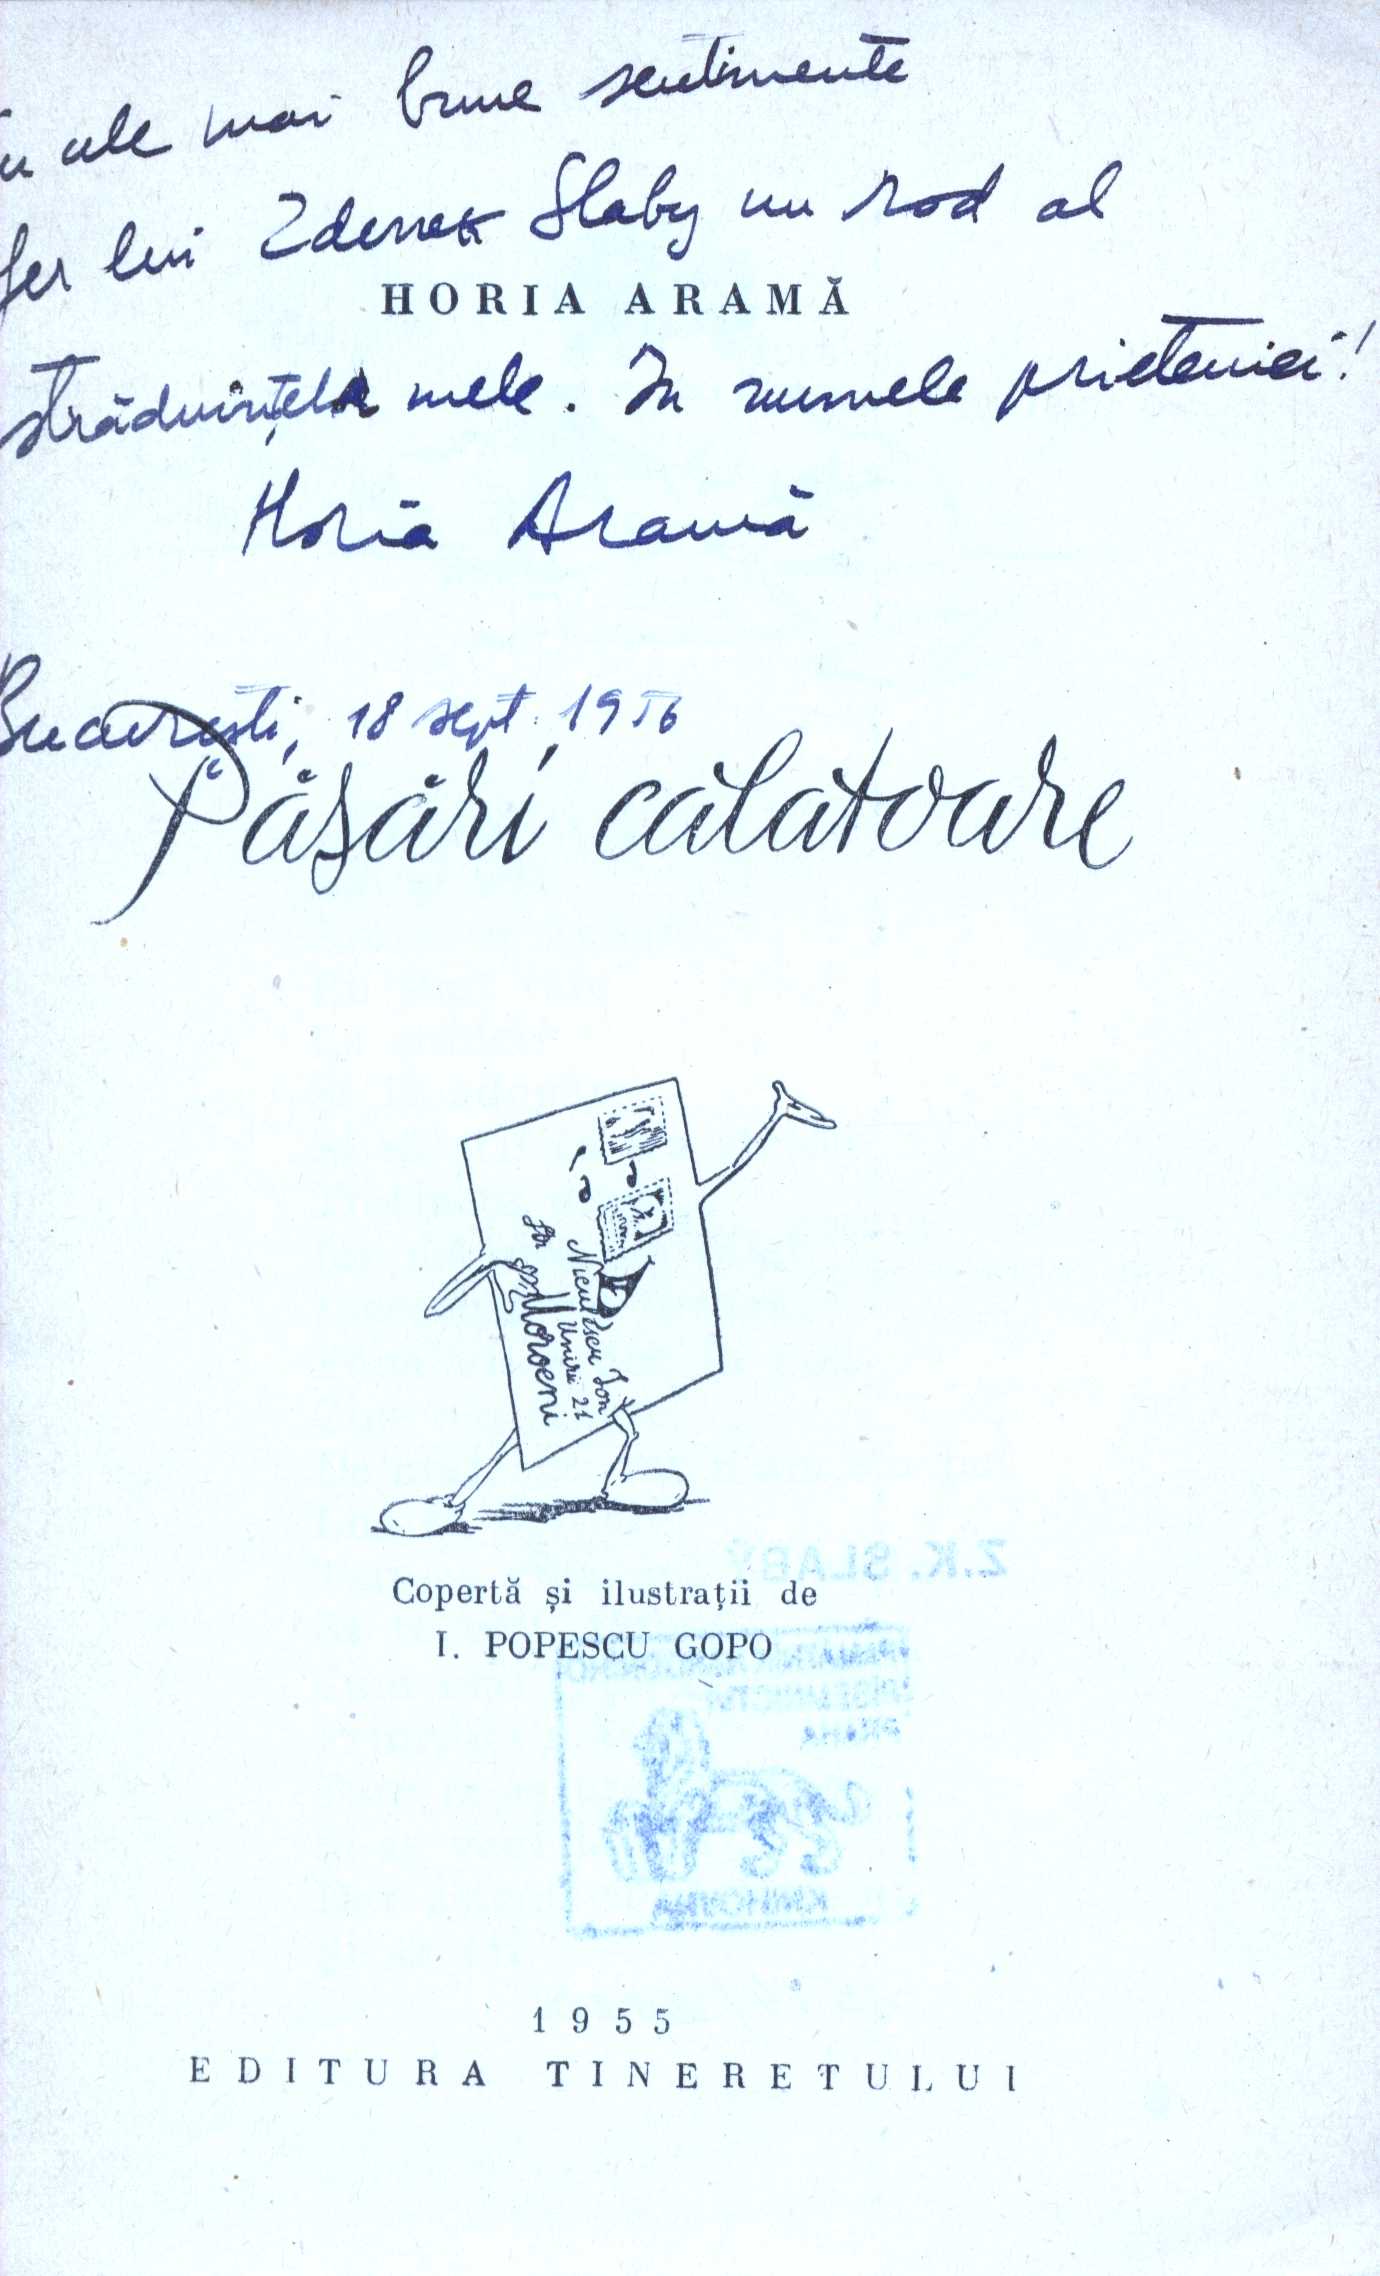 u ale mai bune sentimente
fer lui Zdenek Slaby un rod al
HORIA ARAMĂ
străduințelor mele. În numele prieteniei!
Horia Aramă
București, 18 sept. 1956
Păsări călătoare
Str
Niculescu Ion
Unirii 21
Moroeni
Z.K. SLABÝ
Copertă și ilustrații de
I. POPESCU GOPO
PRAHA
KNIHOVNA
1955
EDITURA TINERETULUI